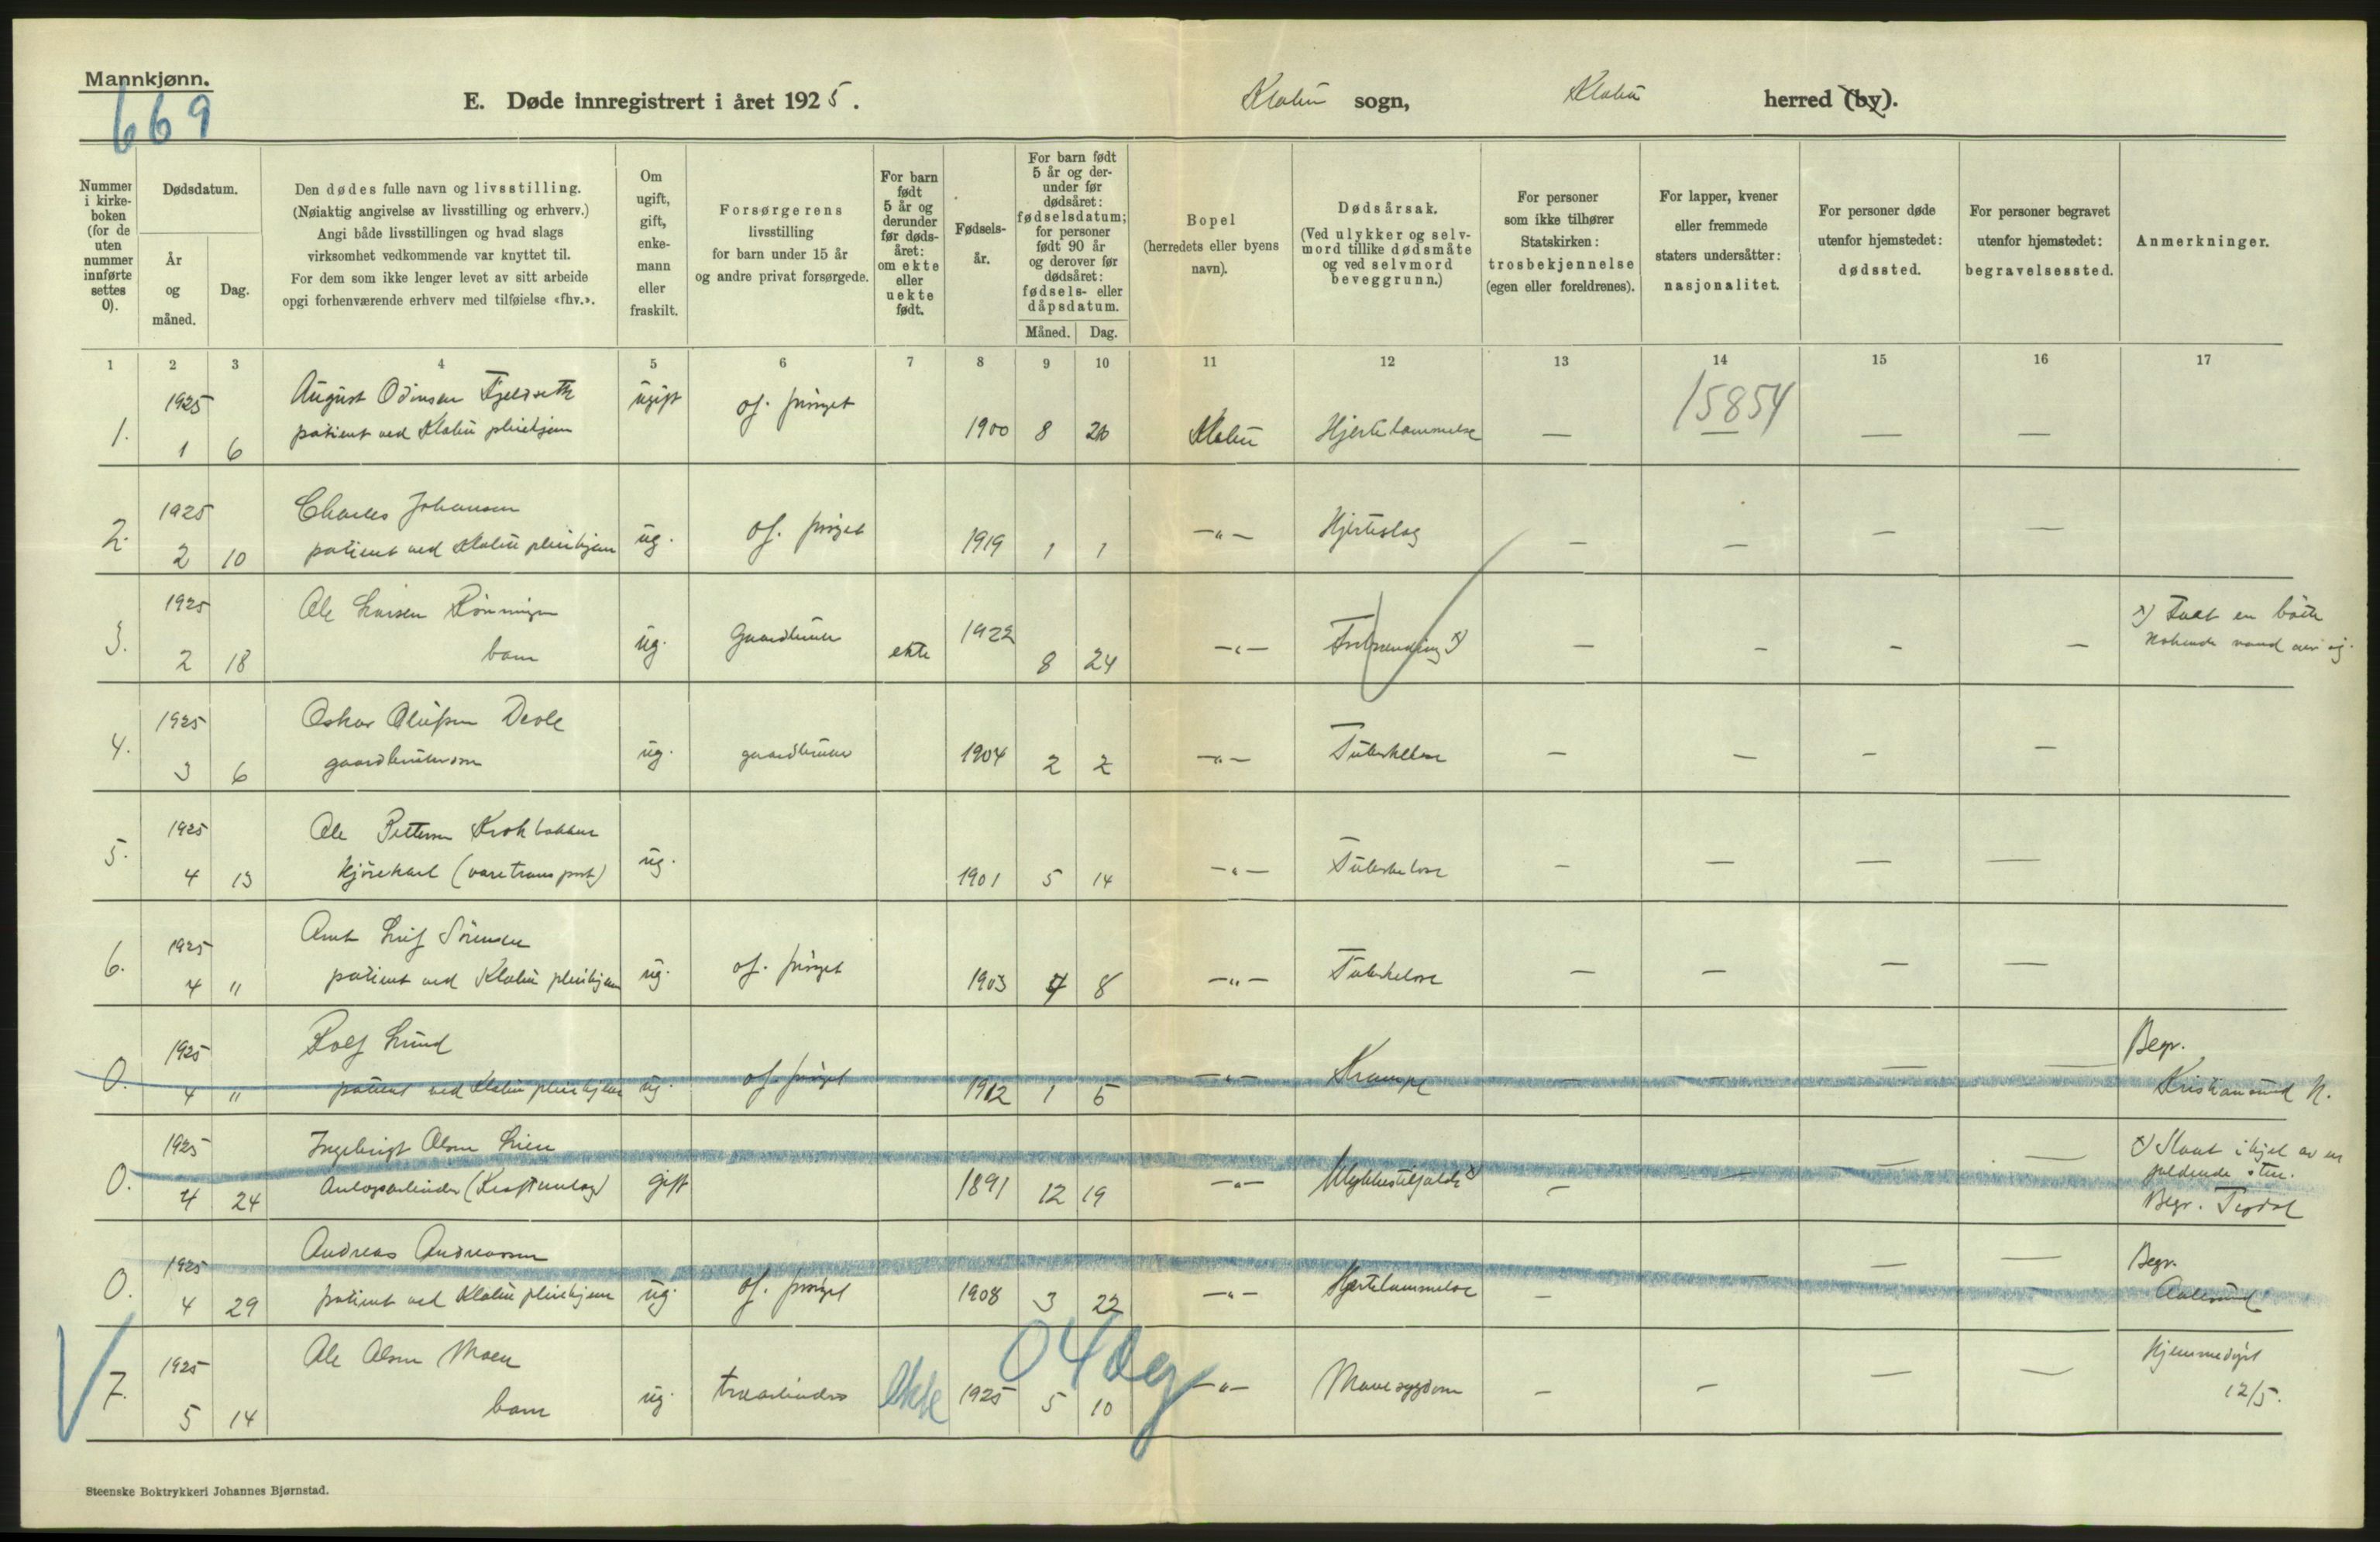 Mannkjønn.
669
E. Døde innregistrert i året 1925.
Klæbu sogn, Klæbu herred (by).
Nummer i kirkeboken (for de uten nummer innførte settes 0).
Dødsdatum.
År og måned.
Dag.
Den dødes fulle navn og livsstilling.
(Nøiaktig angivelse av livsstilling og erhverv.)
Angi både livsstillingen og hvad slags
virksomhet vedkommende var knyttet til.
For dem som ikke lenger levet av sitt arbeide
opgi forhenværende erhverv med tilføielse «fhv.».
Om ugift, gift, enkemann eller fraskilt.
Forsørgerens
livsstilling
for barn under 15 år
og andre privat forsørgede.
For barn født 5 år og derunder før dødsåret: om ekte eller uekte født.
Fødselsår.
For barn født 5 år og derunder før dødsåret: fødselsdatum; for personer født 90 år og derover før dødsåret: fødsels- eller dåpsdatum.
Måned. Dag.
Bopel
(herredets eller byens
navn).
Dødsårsak.
(Ved ulykker og selvmord tillike dødsmåte og ved selvmord beveggrunn.)
For personer
som ikke tilhører
Statskirken:
trosbekjennelse
(egen eller foreldrenes).
For lapper, kvener
eller fremmede
staters undersåtter:
nasjonalitet.
For personer døde
utenfor hjemstedet:
dødssted.
For personer begravet
utenfor hjemstedet:
begravelsessted.
Anmerkninger.
1 2 3 4 5 6 7 8 9 10 11 12 13 14 15 16 17
15854
1925 August Odinsen Fjeldseth ugift of. forsørget
1. 1 6 patient ved Klæbu pleiehjem 1900 8 20 Klæbu Hjertelammelse — — — —
1925 Charles Johansen
2. 2 10 patient ved Klæbu pleiehjem ug. of. forsørget 1919 1 1 —"— Hjerteslag — — — —
1925 Ole Larsen Rönningen x) Faat en bötte
3. 2 18 barn ug. Gaardbruker ekte 1922 8 24 —"— Forbrænding x) — — — — kokende vand over sig.
1925 Oskar Olufsen Devle
4. 3 6 gaardbrukersøn ug. gaardbruker 1904 2 2 —"— Tuberkelose — — — —
1925 Ole Pettersen Krokbakken
5. 4 13 Kjörekarl (varetransport) ug. 1901 5 14 —"— Tuberkelose — — — —
1925 Arnt Leif Sörensen
6. 4 " patient ved Klæbu pleiehjem ug. of. forsørget 1903 4 8 —"— Tuberkelose — — — —
1925 Rolf Lund Begr.
0. 4 " patient ved Klæbu pleiehjem ug. of. forsørget 1912 1 5 —"— Krampe — — — — Kristiansund N.
1925 Ingebrigt Olsen Lien x) Slaat ihjel av en
0. 4 24 Anlægsarbeider (Kraftanlæg) gift 1891 12 19 —"— Ulykkestilfælde x) — — — — faldende sten.
Begr. Tydal
1925 Andreas Andreassen Begr.
0. 4 29 patient ved Klæbu pleiehjem ug. of. forsørget 1908 3 22 —"— Hjertelammelse — — — — Aalesund
04 dg
1925 Ole Olsen Moen Hjemmedöpt
7. 5 14 barn ug. træarbeider Ekte 1925 5 10 —"— Mavesygdom — — — — 12/5.
Steenske Boktrykkeri Johannes Bjørnstad.